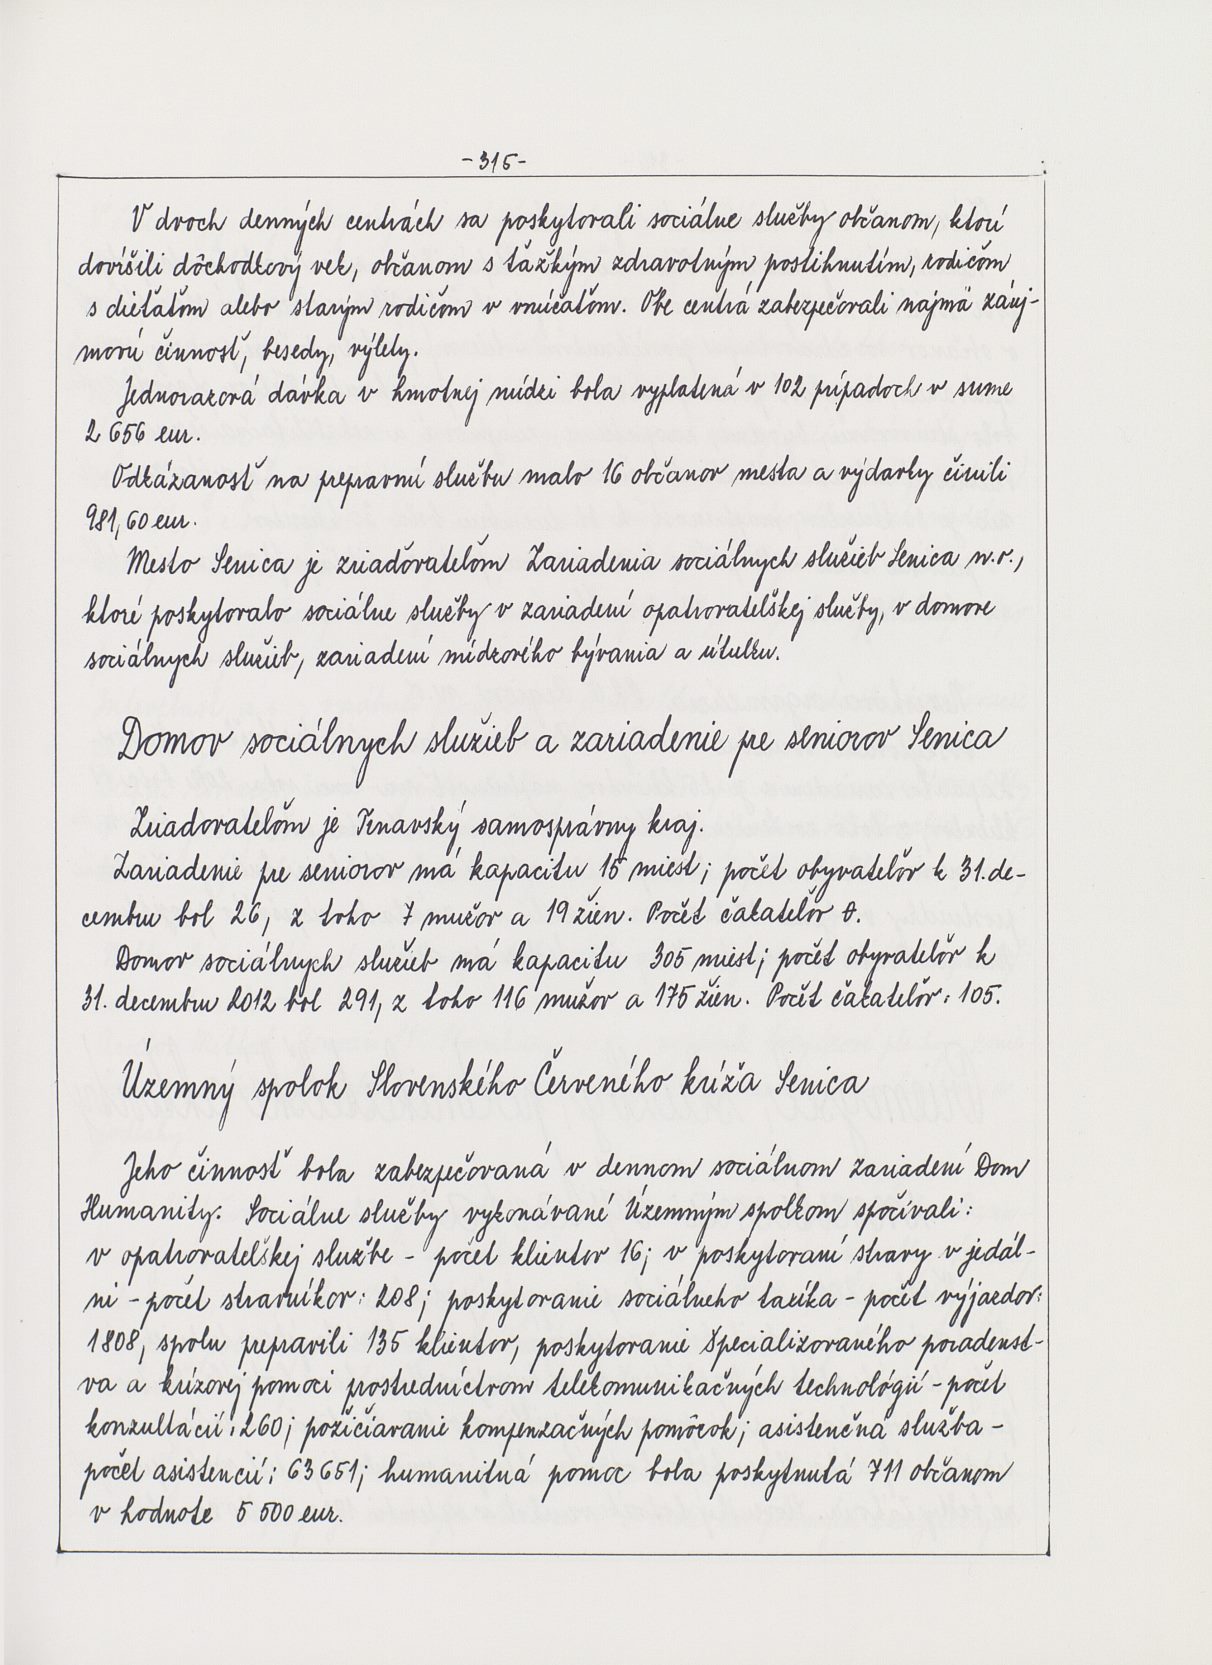 -315-
V dvoch denných centrách sa poskytovali sociálne služby občanom, ktorí
dovŕšili dôchodkový vek, občanom s ťažkým zdravotným postihnutím, rodičom
s dieťaťom alebo starým rodičom v vnúčaťom. Obe centrá zabezpečovali najmä záuj-
movú činnosť, besedy, výlety.
Jednorazová dávka v hmotnej núdzi bola vyplatená v 102 prípadoch v sume
2 656 eur.
Odkázanosť na prepravnú službu malo 16 občanov mesta a výdavky činili
981,60 eur.
Mesto Senica je zriaďovateľom Zariadenia sociálnych služieb Senica n.o.,
ktoré poskytovalo sociálne služby v zariadení opatrovateľskej služby, v domove
sociálnych služieb, zariadení núdzového bývania a útulku.
Domov sociálnych služieb a zariadenie pre seniorov Senica
Zriadovateľom je Trnavský samosprávny kraj.
Zariadenie pre seniorov má kapacitu 15 miest; počet obyvateľov k 31. de-
cembru bol 26, z toho 7 mužov a 19 žien. Počet čakateľov 0.
Domov sociálnych služieb má kapacitu 305 miest; počet obyvateľov k
31. decembru 2012 bol 291, z toho 116 mužov a 175 žien. Počet čakateľov: 105.
Územný spolok Slovenského Červeného kríža Senica
Jeho činnosť bola zabezpečovaná v dennom sociálnom zariadení Dom
Humanity. Sociálne služby vykonávané Územným spolkom spočívali:
v opatrovateľskej službe - počet klientov 16; v poskytovaní stravy v jedál-
ni - počet stravníkov: 208; poskytovanie sociálneho taxíka - počet výjazdov:
1808, spolu prepravili 135 klientov, poskytovanie špecializovaného poradenst-
va a krízovej pomoci prostredníctvom telekomunikačných technológií - počet
konzultácií: 260; požičiavanie kompenzačných pomôcok; asistenčná služba -
počet asistencií: 63 651; humanitná pomoc bola poskytnutá 711 občanom
v hodnote 5 500 eur.